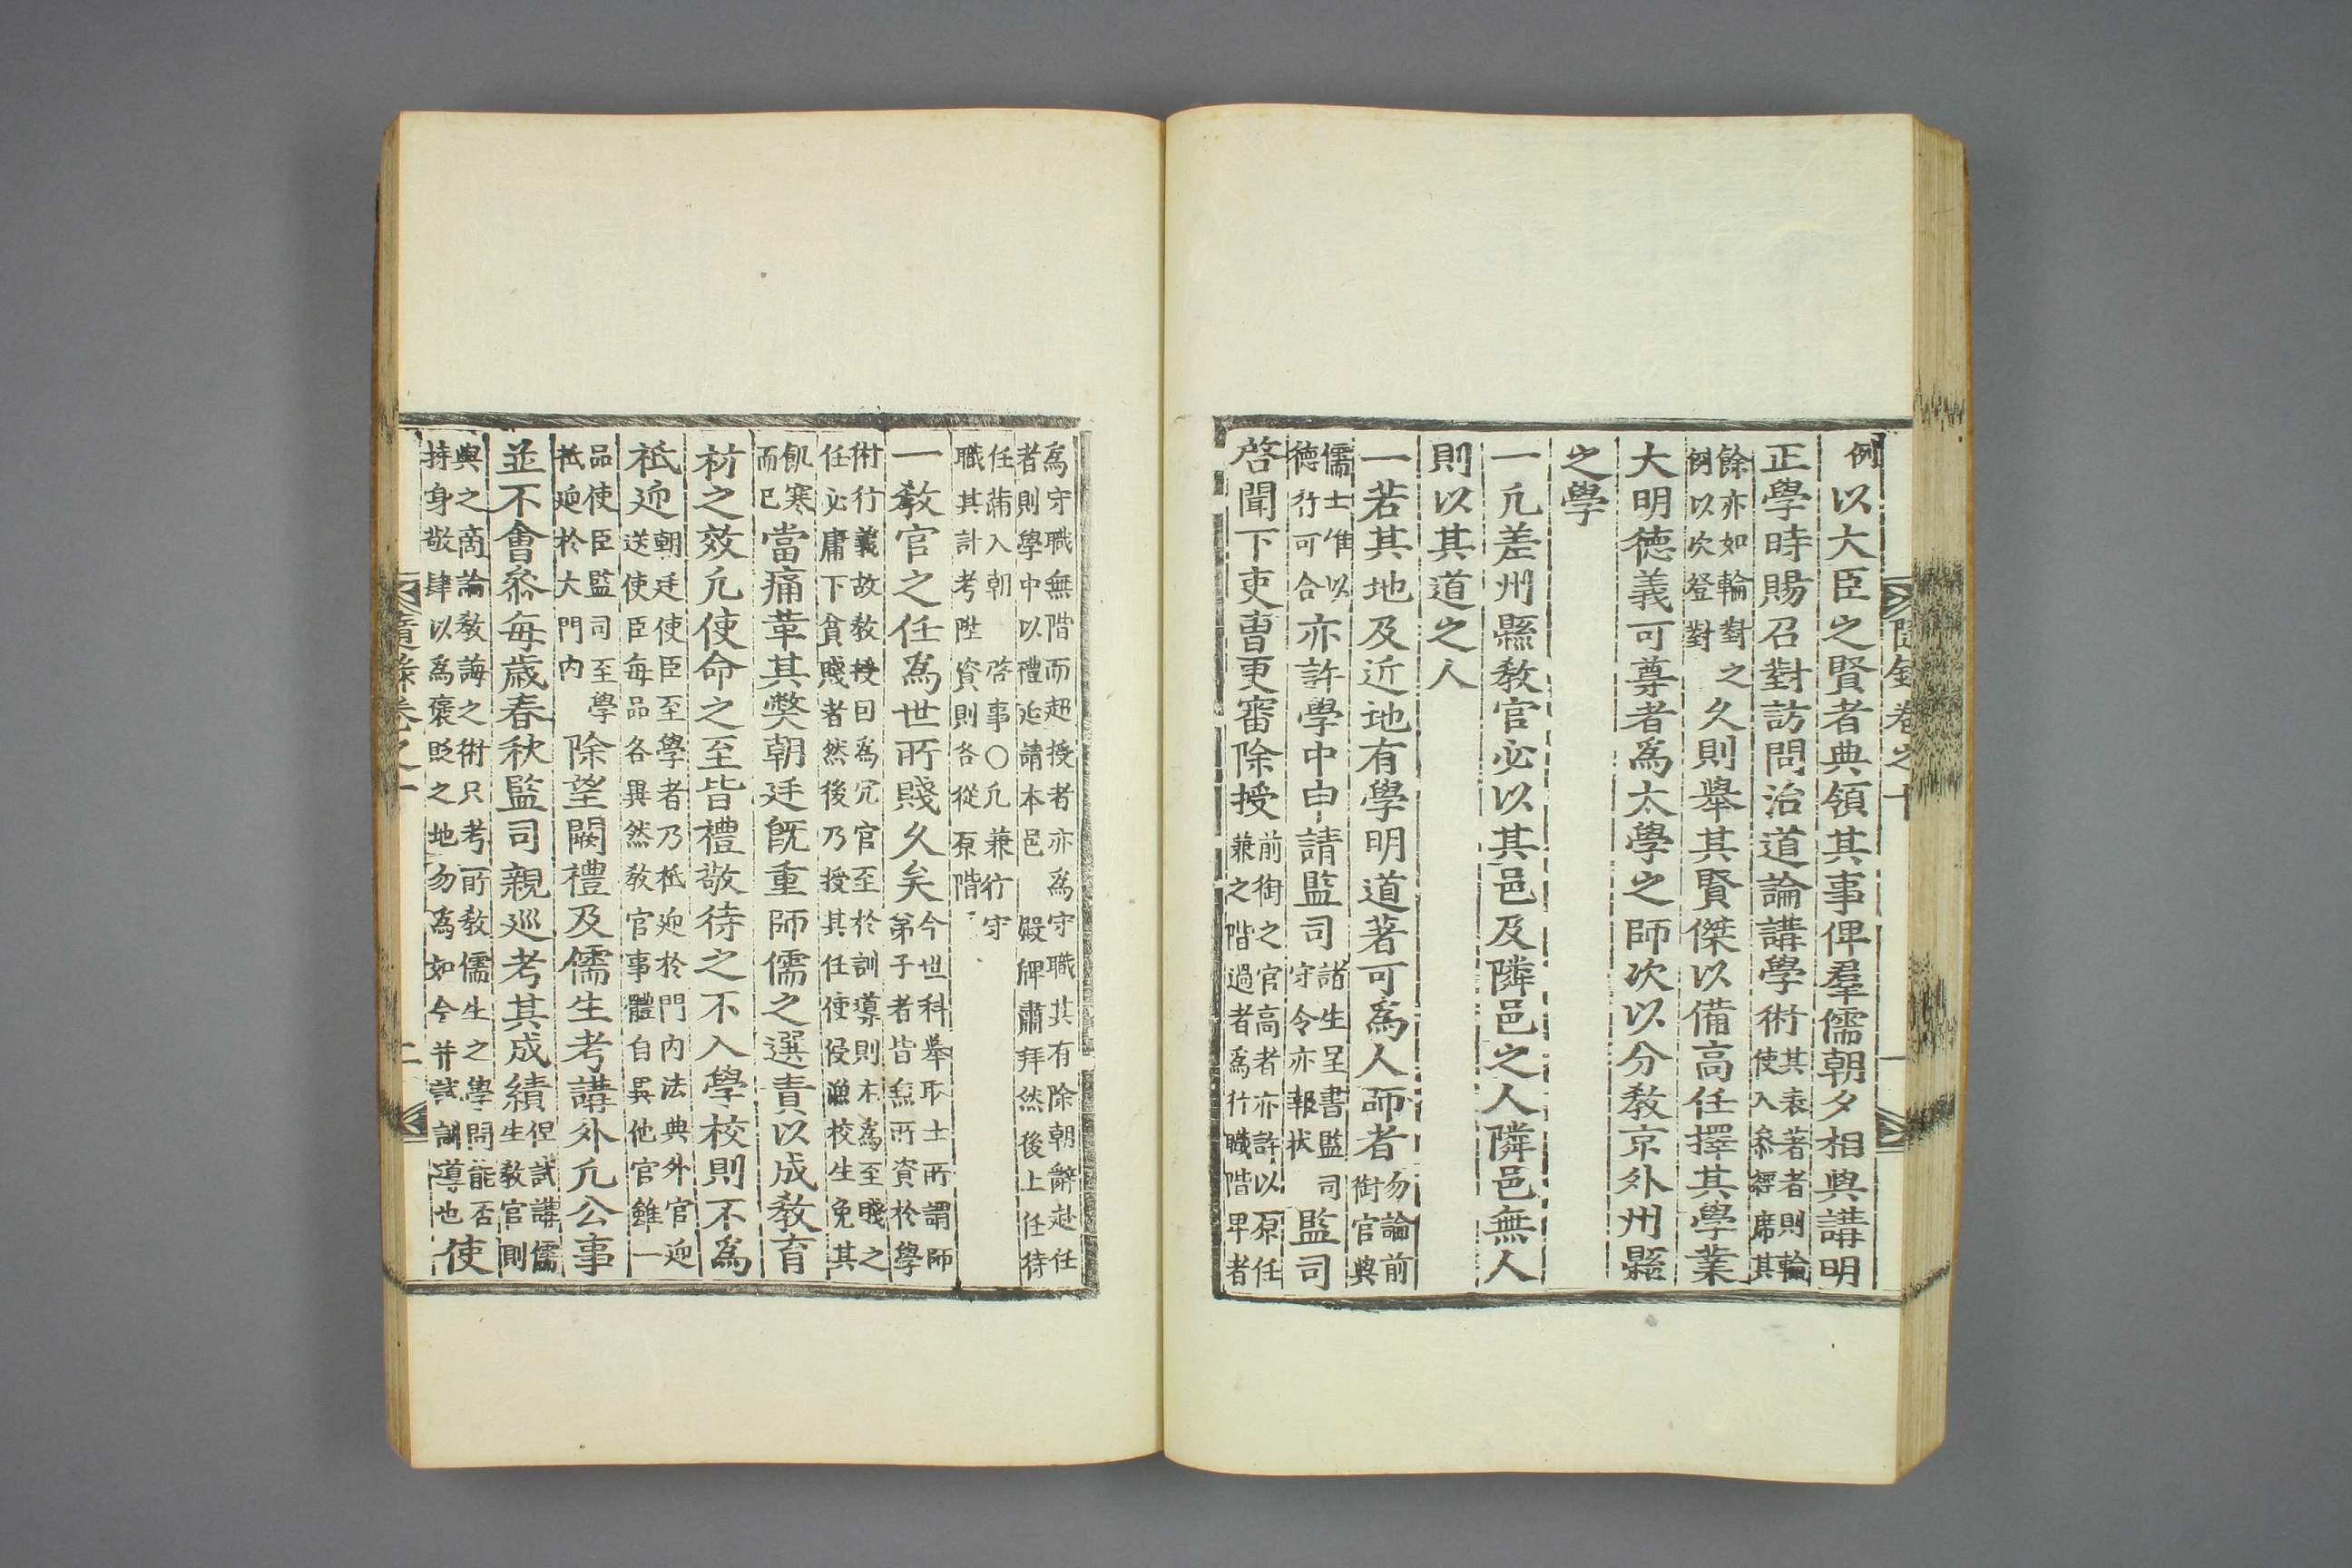 隨錄卷之十　一
例以大臣之賢者典領其事俾羣儒朝夕相與講明
正學時賜召對訪問治道論講學術其表著者則輪
使入叅經席其
餘亦如輪對之
例以次登對
久則舉其賢傑以備高任擇其學業
大明德義可尊者爲太學之師次以分教京外州縣
之學
一凡差州縣教官必以其邑及隣邑之人隣邑無人
則以其道之人
一若其地及近地有學明道著可爲人師者勿論前
銜官與
儒士惟以
德行可合
亦許學中申請監司諸生呈書監司
守令亦報狀
監司
啓聞下吏曹更審除授前銜之官高者亦許以原任
兼之階過者爲行職階卑者
爲守職無階而超授者亦爲守職其有除朝辭赴任
者則學中以禮延請本邑　殿牌肅拜然後上任待
任滿入朝　啓事○凡兼行守
職其計考陞資則各從原階
一教官之任爲世所賤久矣今世科舉取士所謂師
弟子者皆無所資於學
術行義故教授曰爲冗官至於訓導則本爲至賤之
任必庸下貧賤者然後乃授其任使侵漁校生免其
飢寒
而已
當痛革其弊朝廷旣重師儒之選責以成教育
材之效凡使命之至皆禮敬待之不入學校則不爲
祗迎朝廷使臣至學者乃祗迎於門内法典外官迎
送使臣每品各異然教官事體自異他官雖一
品使臣監司至學
祗迎於大門内
除望闕禮及儒生考講外凡公事
並不會叅每歲春秋監司親巡考其成績但試講儒
生教官則
與之商論教誨之術只考所教儒生之學問能否
持身敬肆以爲襃貶之地勿爲如今并試訓導也
使
隨錄卷之十　二